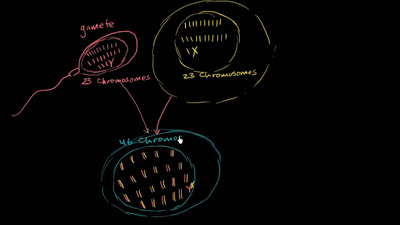 gamete
Y
23 Chromosomes
X
23 Chromosomes
46 Chromos
YX